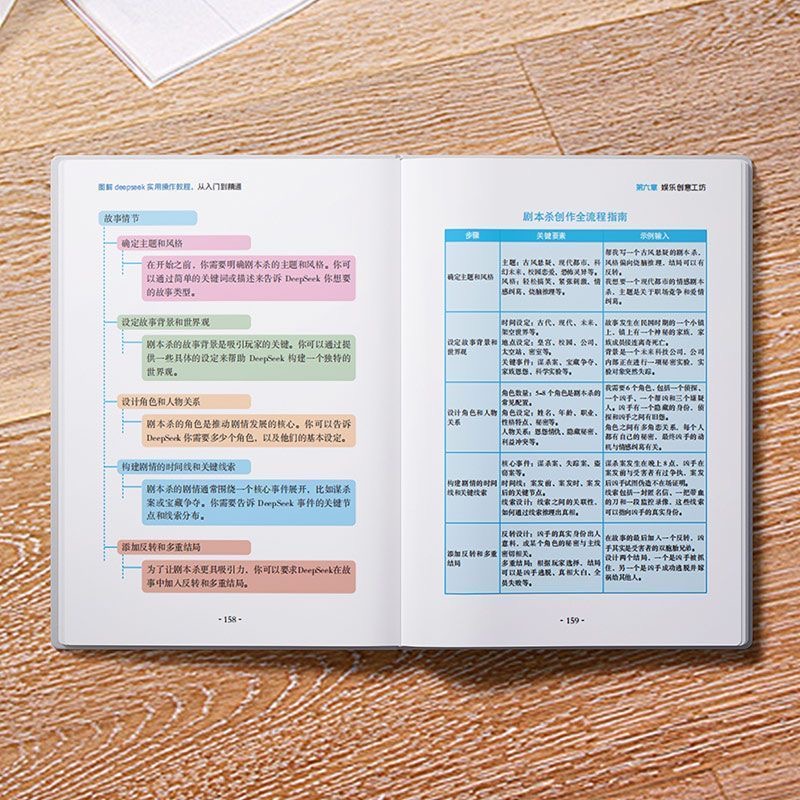 图解 deepseek 实用操作教程，从入门到精通
故事情节
确定主题和风格
在开始之前，你需要明确剧本杀的主题和风格。你可
以通过简单的关键词或描述来告诉 DeepSeek 你想要
的故事类型。
设定故事背景和世界观
剧本杀的故事背景是吸引玩家的关键。你可以通过提
供一些具体的设定来帮助 DeepSeek 构建一个独特的
世界观。
设计角色和人物关系
剧本杀的角色是推动剧情发展的核心。你可以告诉
DeepSeek 你需要多少个角色，以及他们的基本设定。
构建剧情的时间线和关键线索
剧本杀的剧情通常围绕一个核心事件展开，比如谋杀
案或宝藏争夺。你需要告诉 DeepSeek 事件的关键节
点和线索分布。
添加反转和多重结局
为了让剧本杀更具吸引力，你可以要求DeepSeek在故
事中加入反转和多重结局。
- 158 -
第六章 娱乐创意工坊
剧本杀创作全流程指南
步骤 关键要素 示例输入
确定主题和风格
主题：古风悬疑、现代都市、科
幻未来、校园恋爱、恐怖灵异等。
风格：轻松搞笑、紧张刺激、情
感纠葛、烧脑推理等。
帮我写一个古风悬疑的剧本杀，
风格偏向烧脑推理，结局可以有
反转。
我想要一个现代都市的情感剧本
杀，主题是关于职场竞争和爱情
纠葛。
设定故事背景和
世界观
时间设定：古代、现代、未来、
架空世界等。
地点设定：皇宫、校园、公司、
太空站、密室等。
关键事件：谋杀案、宝藏争夺、
家族恩怨、科学实验等。
故事发生在民国时期的一个小镇
上，镇上有一个神秘的家族，家
族成员接连离奇死亡。
背景是一个未来科技公司，公司
内部正在进行一项秘密实验，实
验对象突然失踪。
设计角色和人物
关系
角色数量：5-8 个角色是剧本杀的
常见配置。
角色设定：姓名、年龄、职业、
性格特点、秘密等。
人物关系：恩怨情仇、隐藏秘密、
利益冲突等。
我需要 6 个角色，包括一个侦探、
一个凶手、一个帮凶和三个嫌疑
人。凶手有一个隐藏的身份，侦
探和凶手之间有旧怨。
角色之间有多角恋关系，每个人
都有自己的秘密，最终凶手的动
机与情感纠葛有关。
构建剧情的时间
线和关键线索
核心事件：谋杀案、失踪案、盗
窃案等。
时间线：案发前、案发时、案发
后的关键节点。
线索设计：线索之间的关联性、
如何通过线索推理出真相。
谋杀案发生在晚上 8 点，凶手在
案发前与受害者有过争执，案发
后凶手试图伪造不在场证明。
线索包括一封匿名信、一把带血
的刀和一段监控录像，这些线索
可以指向凶手的真实身份。
添加反转和多重
结局
反转设计：凶手的真实身份出人
意料，或某个角色的秘密与主线
密切相关。
多重结局：根据玩家选择，结局
可以是凶手逃脱、真相大白、全
员失败等。
在故事的最后加入一个反转，凶
手其实是受害者的双胞胎兄弟。
设计两个结局，一个是凶手被抓
住，另一个是凶手成功逃脱并嫁
祸给其他人。
- 159 -